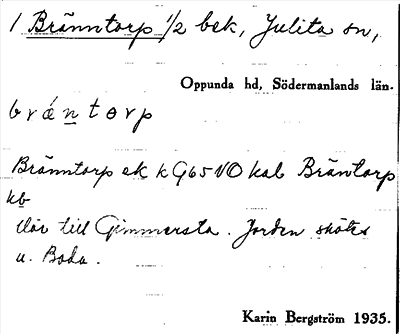 1 Bränntorp 1/2 bek, Julita sn,
Oppunda hd, Södermanlands län.
bräntorp
Bränntorp ek k G65 NO kal Bräntorp
kb
lör till Gimmersta. Jorden skötes
u. Boda.
Karin Bergström 1935.